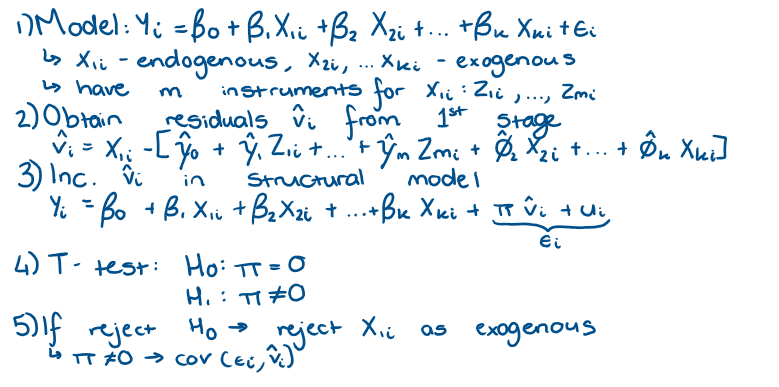 1) Model: Yi = β0 + β1 X1i + β2 X2i + ... + βk Xki + εi
↳ X1i - endogenous, X2i, ... Xki - exogenous
↳ have m instruments for X1i : Z1i, ..., Zmi
2) Obtain residuals v̂i from 1st stage
v̂i = X1i - [ŷ0 + ŷ1 Z1i + ... + ŷm Zmi + ϕ̂2 X2i + ... + ϕ̂k Xki]
3) Inc. v̂i in structural model
Yi = β0 + β1 X1i + β2 X2i + ... + βk Xki + π v̂i + ui
εi
4) T-test: H0: π = 0
H1: π ≠ 0
5) If reject H0 → reject X1i as exogenous
↳ π ≠ 0 → cov (εi, v̂i)